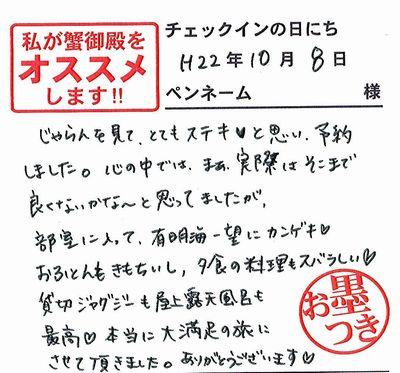 私が蟹御殿を
オススメ
します!!
チェックインの日にち
H22年10月8日
ペンネーム 様
じゃらんを見て、とてもステキ♥と思い、予約
しました。心の中では、まぁ、実際はそこまで
良くないかな～と思ってましたが、
部室に入って、有明海一望にカンゲキ♡
おふとんもきもちいし、夕食の料理もスバラしい♡
貸切ジャグジーも屋上露天風呂も
最高♡ 本当に大満足の旅に
させて頂きました。ありがとうございます♡
お墨
つき